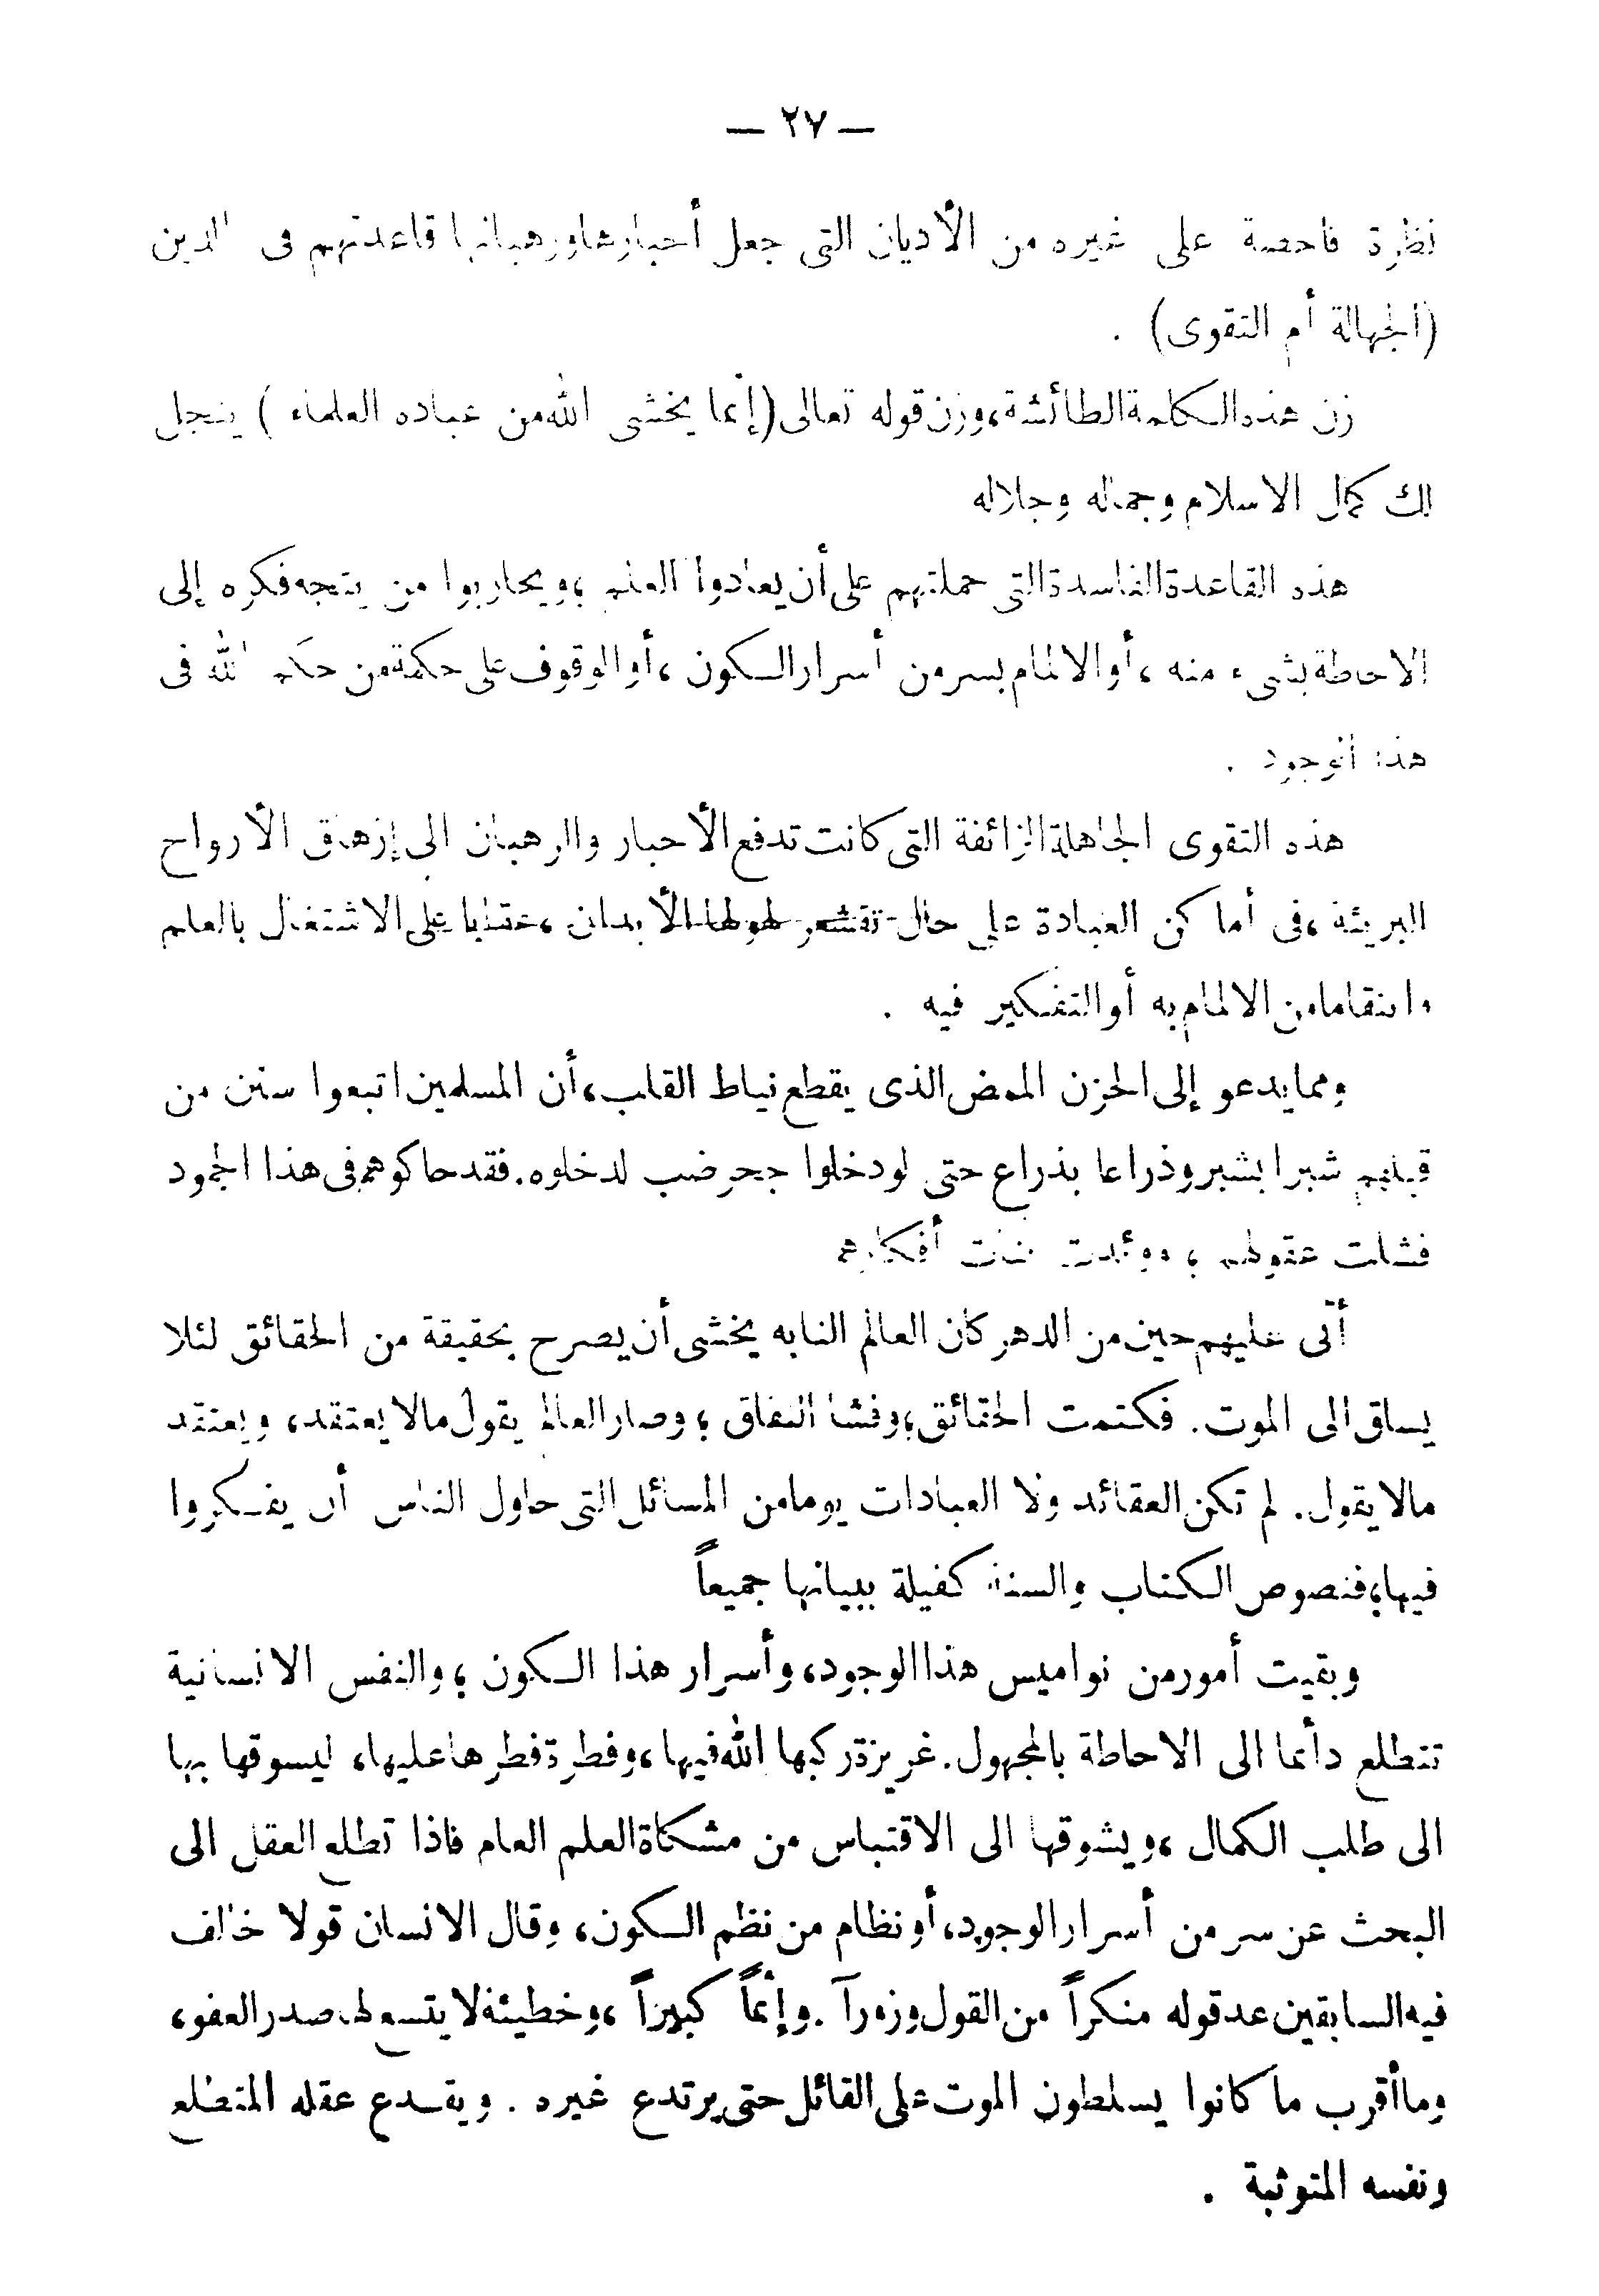 — ٢٧ —
نظرة فاحصة على غيره من الأديان التى جعل أحبارها ورهبانها قاعدتهم فى الدين
(الجهالة أم التقوى) .
زن هذه الكلمة الطائشة، وزن قوله تعالى (إنما يخشى الله من عباده العلماء) ينجل
لك كمال الاسلام وجماله وجلاله
هذه القاعدة الفاسدة التى حملتهم على أن يعادوا العلم، ويحاربوا من يتجه فكره إلى
الاحاطة بشىء منه، أو الالمام بسر من أسرار الكون، أو الوقوف على حكمة من حكم الله فى
هذا الوجود .
هذه التقوى الجاهلة الزائفة التى كانت تدفع الأحبار والرهبان الى إزهاق الأرواح
البريئة، فى أماكن العبادة على حال تقشعر لهولها الأبدان، عقابا على الاشتغال بالعلم
وانتقاما من الالمام به أو التفكير فيه .
ومما يدعو إلى الحزن الممض الذى يقطع نياط القلب، أن المسلمين اتبعوا سنن من
قبلهم شبرا بشبر وذراعا بذراع حتى لو دخلوا جحر ضب لدخلوه. فقد حاكوهم فى هذا الجمود
فشلت عقولهم، ووئدت بنات أفكارهم
أتى عليهم حين من الدهر كان العالم النابه يخشى أن يصرح بحقيقة من الحقائق لئلا
يساق الى الموت. فكتمت الحقائق، وفشا النفاق، وصار العالم يقول مالا يعتقد، ويعتقد
مالا يقول. لم تكن العقائد ولا العبادات يوما من المسائل التى حاول الناس أن يفكروا
فيها، فنصوص الكتاب والسنة كفيلة ببيانها جميعاً
وبقيت أمور من نواميس هذا الوجود، وأسرار هذا الكون، والنفس الانسانية
تتطلع دأمما الى الاحاطة بالمجهول. غريزة ركبها الله فيها، وفطرة فطرها عليها، ليسوقها بها
الى طلب الكمال، ويشوقها الى الاقتباس من مشكاة العلم العام فاذا تطلع العقل الى
البحث عن سر من أسرار الوجود، أو نظام من نظم الكون، وقال الانسان قولا خالف
فيه السابقين عد قوله منكراً من القول وزورآ . وإثماً كبيراً، وخطيئة لا يتسع لها صدر العفو،
وما أقرب ما كانوا يسلطون الموت على القائل حتى يرتدع غيره . ويقدع عقله المتطلع
ونفسه المتوثبة .